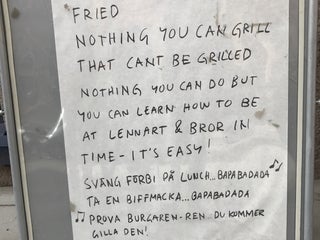 FRIED
NOTHING YOU CAN GRILL
THAT CANT BE GRILLED
NOTHING YOU CAN DO BUT
YOU CAN LEARN HOW TO BE
AT LENNART & BROR IN
TIME - IT'S EASY!
SVÄNG FÖRBI PÅ LUNCH... BAPABADADA
TA EN BIFFMACKA...BAPABADADA
PROVA BURGAREN-REN DU KOMMER
GILLA DEN!